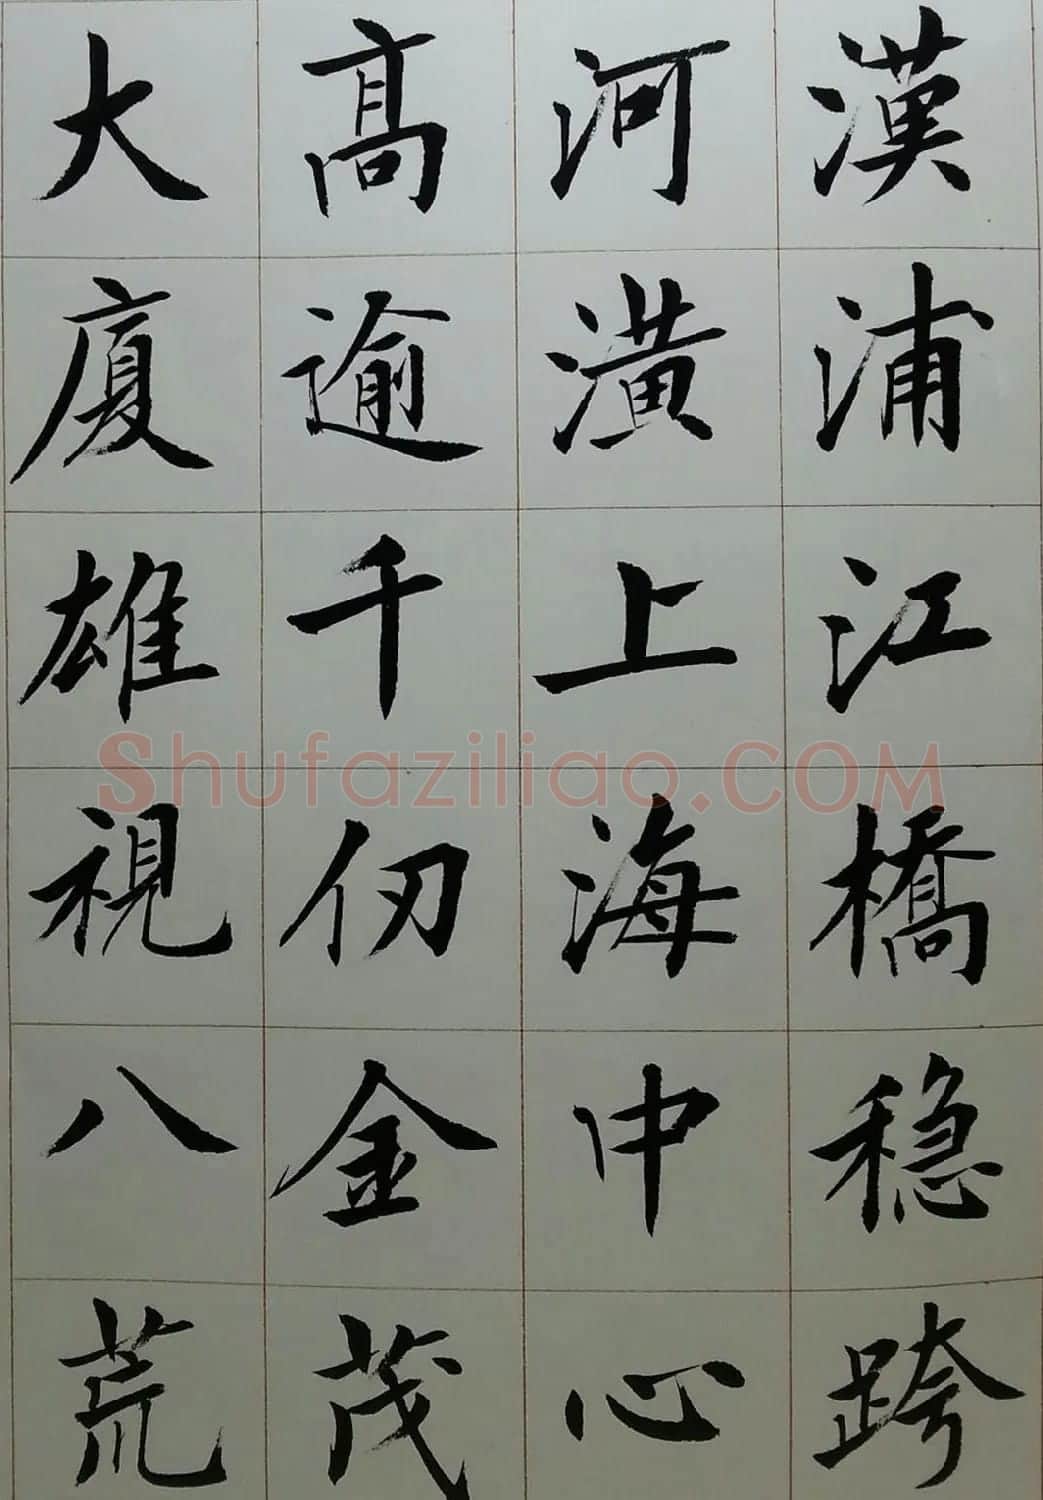 漢浦江橋稳跨
河潢上海中心
高逾千仞金茂
大廈雄視八荒
Shufaziliao.COM